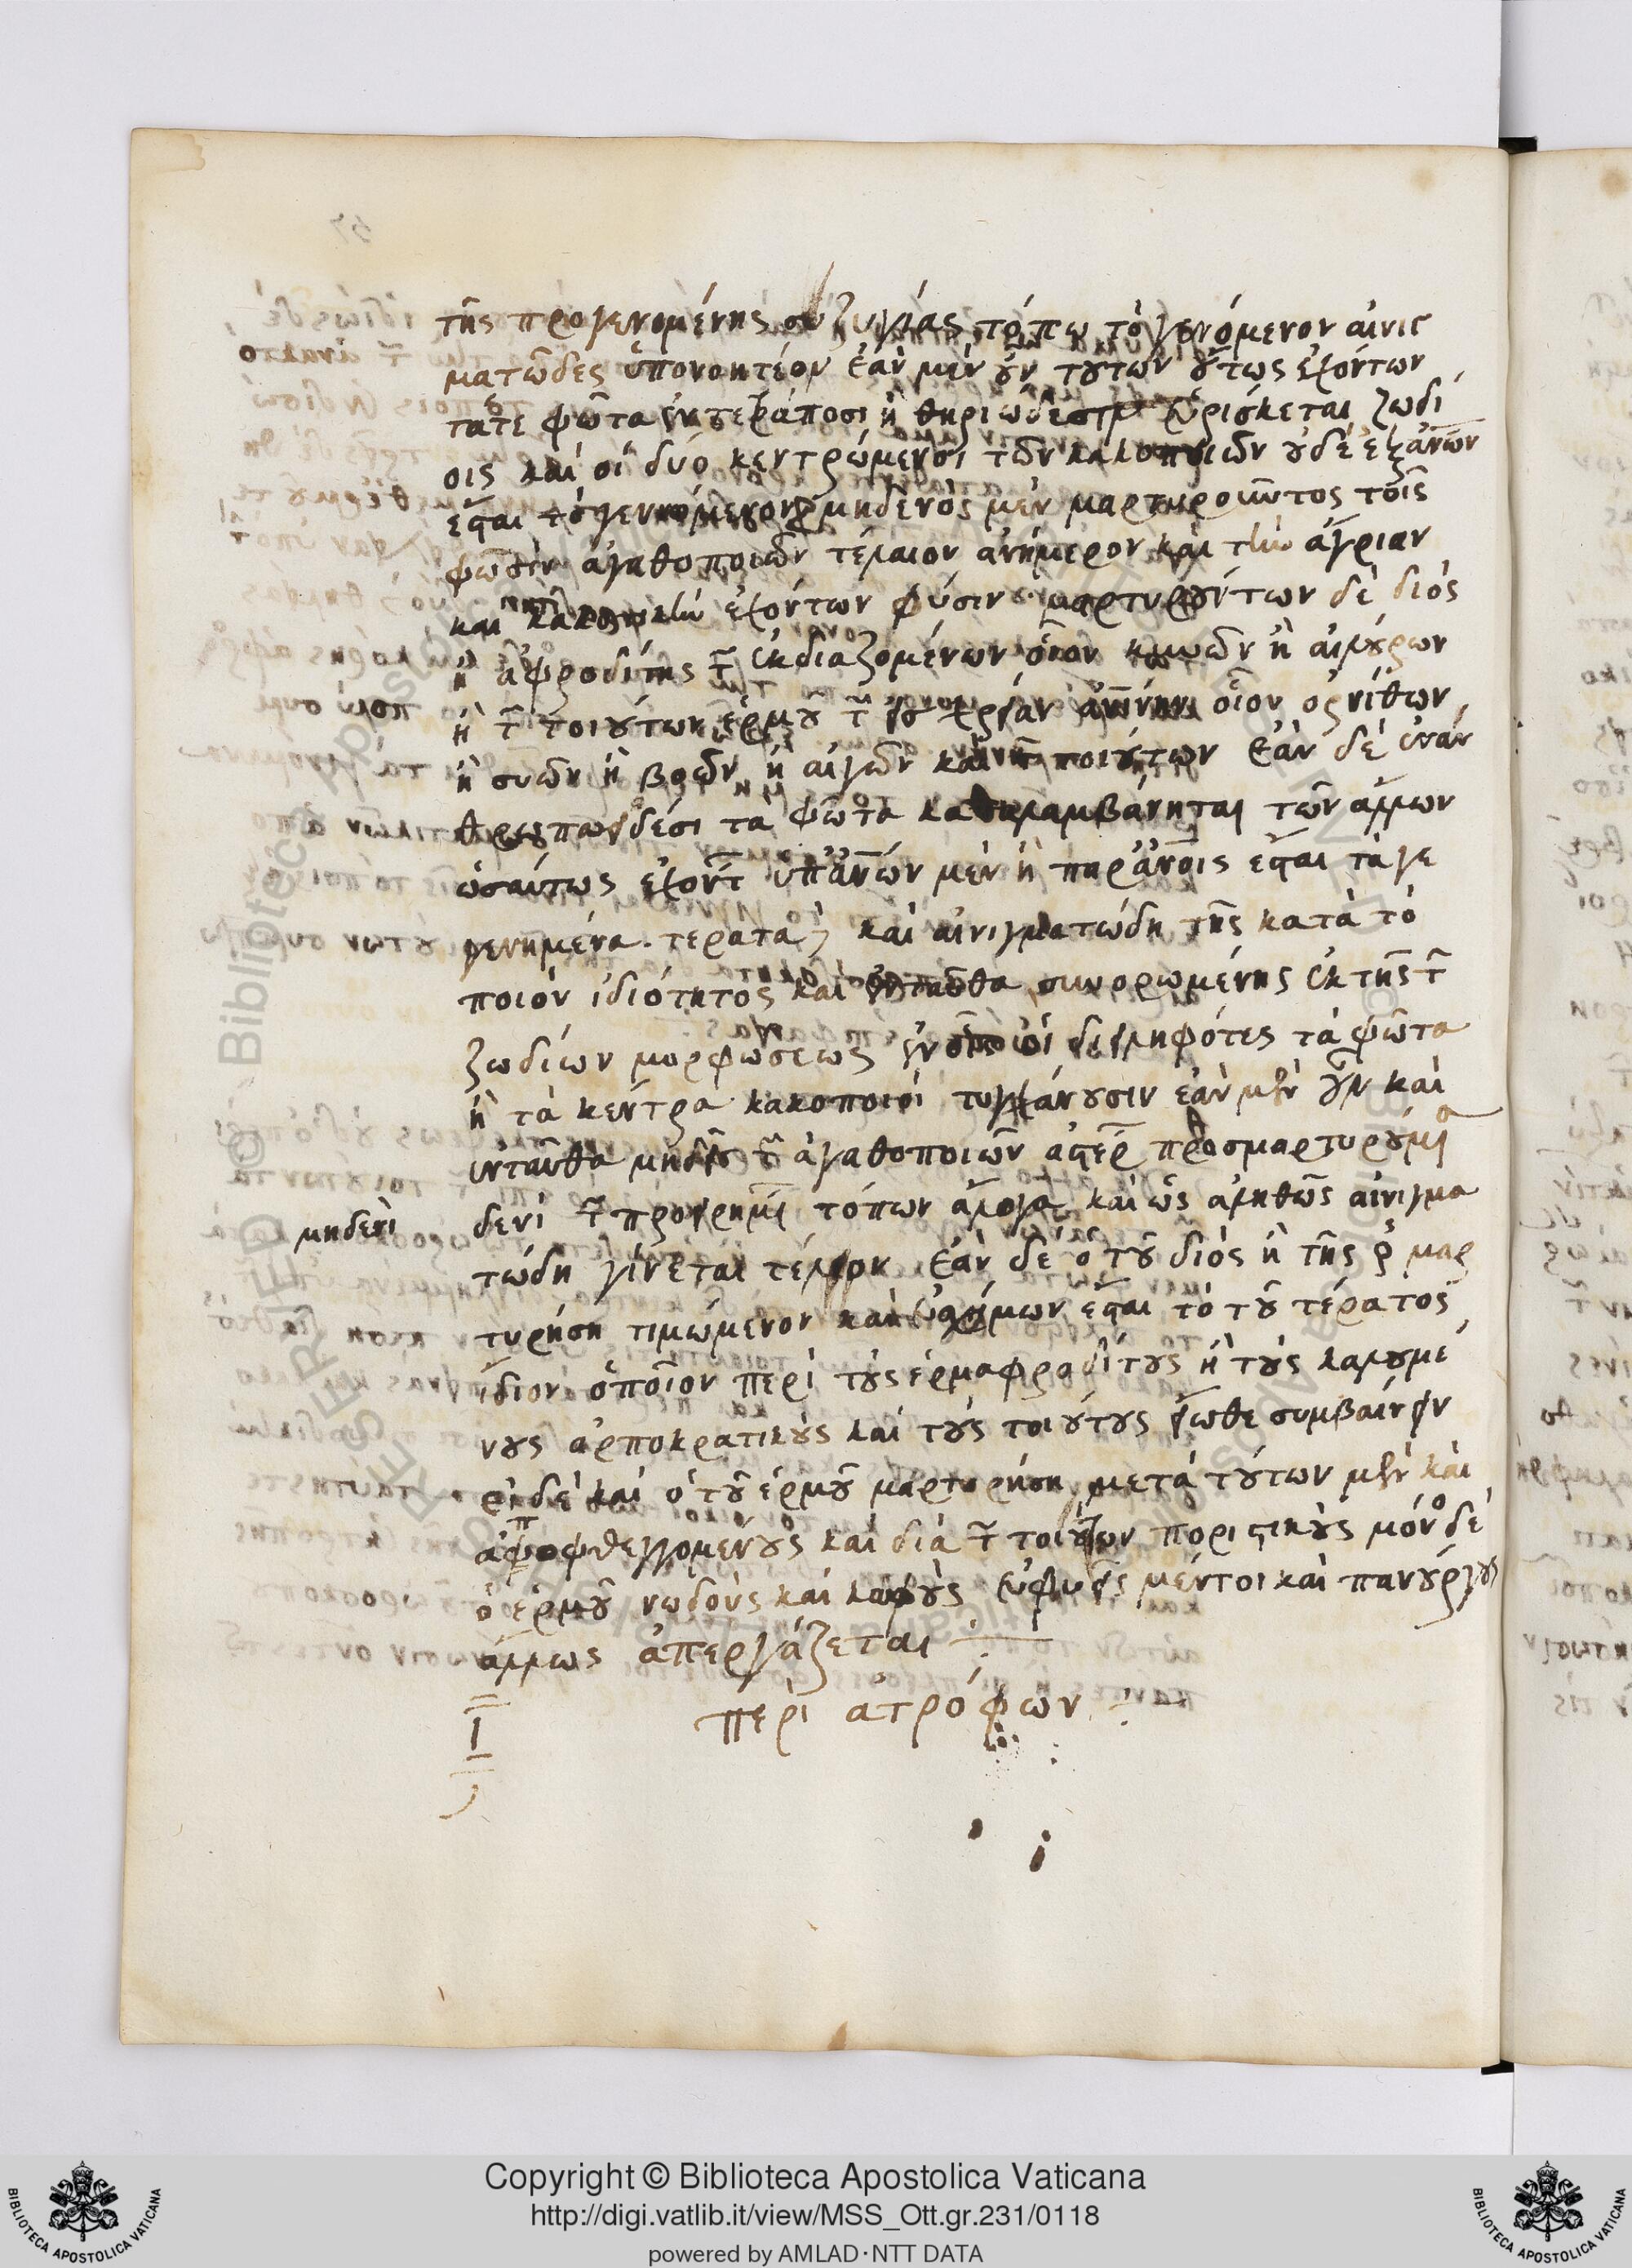 τῆς προγενομένης συζυγίας τόπω τὸ γενόμενον αἰνιγ
ματῶδες ὑπονοητέον ἐὰν μὲν οὖν τούτων οὕτως ἐχόντων
τάτε φῶτα ἐν τετράποσι ἢ θηριώδεσιν εὑρίσκεται ζωδί
οις καὶ οἱ δύο κεντρώμενοι τῶν κακοποιῶν οὐδὲ ἐξ ἀνῶν
ἔσται τὸ γεννώμενον μηδενὸς μὲν μαρτυροῦντος τοῖς
φωσὶν ἀγαθοποιῶν τέλαιον ἀνήμερον καὶ τὴν ἀγρίαν
καὶ κακωτικὴν ἐχόντων φύσιν μαρτυρούντων δὲ διὸς
ἢ ἀφροδίτης τ̅ ἐκδιαζομένων οἷον κυνῶν ἢ αἰλούρων
ἢ τ̅ τοιούτων ἑρμοῦ τ̅ εἰς χρείαν ἀνίνην οἷον ὀρνίθων
ἢ συῶν ἢ βοῶν ἢ αἰγῶν καὶ τ̅ τοιούτων ἐὰν δὲ ἐν ἀν
θρωπωδέσι τὰ φῶτα καταλαμβάνηται τῶν ἄλλων
ὡσαύτως ἐχόντ̅ ὑπ' ἀνῶν μὲν ἢ παρ' ἀνοις ἔσται τὰ γε
γενημένα τερατα καὶ αἰνιγματώδη τῆς κατὰ τὸ
ποιὸν ἰδιότητος καὶ ἐνταῦθα συνορωμένης ἐκ τῆς τ̅
ζωδίων μορφώσεως ἐν οἷς οἱ διειληφότες τὰ φῶτα
ἢ τὰ κέντρα κακοποιοὶ τυγχάνουσιν ἐὰν μὲν οὖν καὶ
ἐνταῦθα μηδεὶς τ̅ ἀγαθοποιῶν ἀστέρ προσμαρτυρούμι
μηδενὶ
δενὶ τ̅ προειρημ τόπων ἄλογα καὶ ὡς ἀληθῶς αἰνιγμα
τώδη γίνεται τέλεον ἐὰν δὲ ὁ τοῦ διὸς ἢ τῆς ♀ μαρ
τυρήση τιμώμενον καὶ εὐσχήμων ἔσται τὸ τοῦ τέρατος
ἴδιον ὁποῖον περὶ τοὺς ἑρμαφροδίτους ἢ τοὺς καλουμέ
νους ἁρποκρατικοὺς καὶ τοὺς τοιούτους εἴωθε συμβαίνειν
εἰ δὲ καὶ ὁ τοῦ ἑρμοῦ μαρτυρήση μετὰ τούτων μὲν καὶ
ἀποφθεγγομένους καὶ διὰ τ̅ τοιούτων ποριστικοὺς μόνος δὲ
ὁ ἑρμοῦ νωδοὺς καὶ κωφοὺς εὐφυεῖς μέντοι καὶ πανούργους
ἄλλως ἀπεργάζεται
ι περὶ ἀτρόφων
Copyright © Biblioteca Apostolica Vaticana
http://digi.vatlib.it/view/MSS_Ott.gr.231/0118
powered by AMLAD·NTT DATA